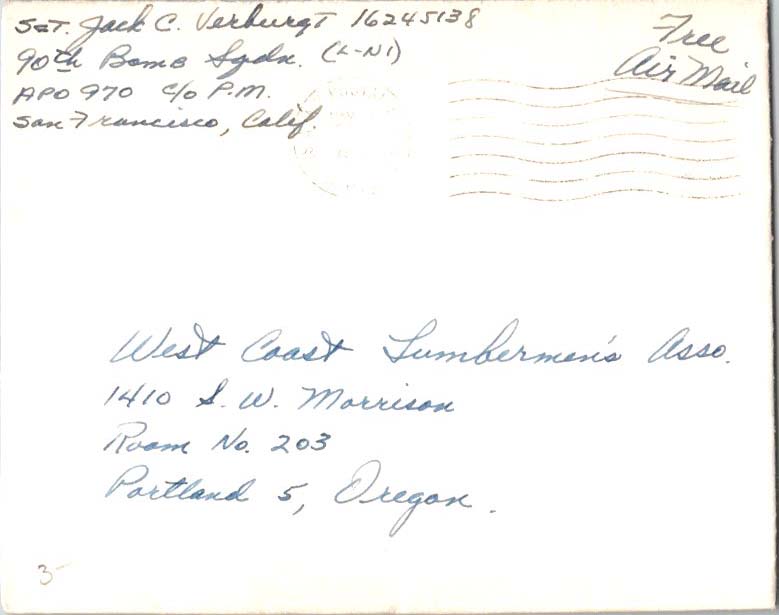 Sgt. Jack C. Verburgt 16245138
90th Bomb Sqdn. (L-NI)
APO 970 c/o P.M.
San Francisco, Calif.
Free
Air Mail
West Coast Lumbermen's Asso.
1410 S. W. Morrison
Room No. 203
Portland 5, Oregon.
3-